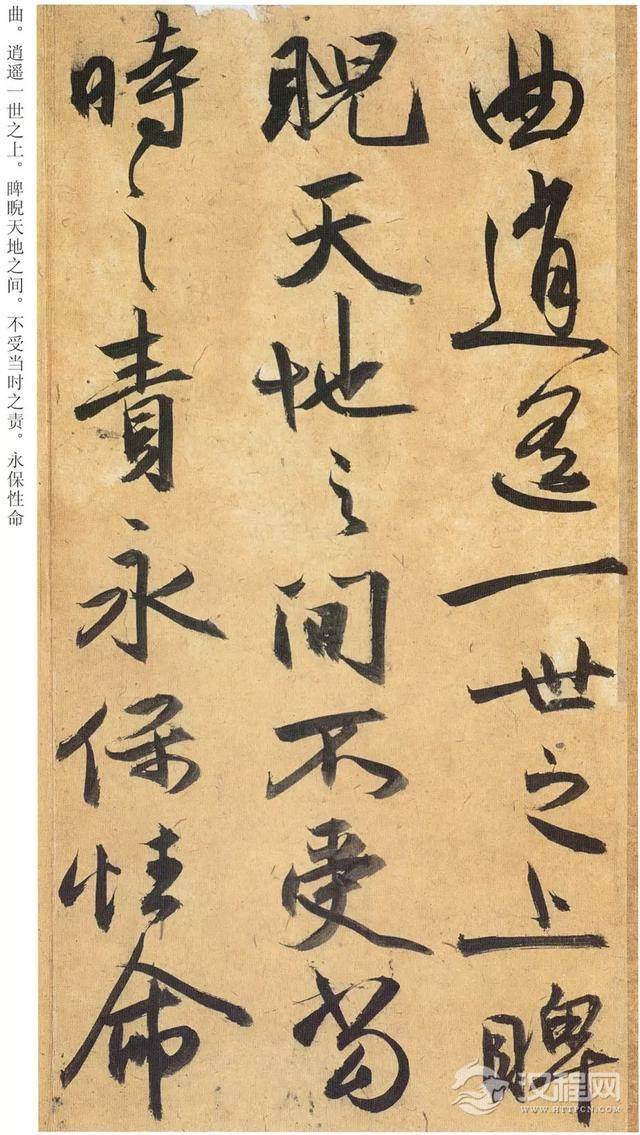 曲逍遥一世之上睥
睨天地之间不受当
時之責永保性命
曲。逍遥一世之上。睥睨天地之间。不受当时之责。永保性命
汉程网
WWW.HTTPCN.COM